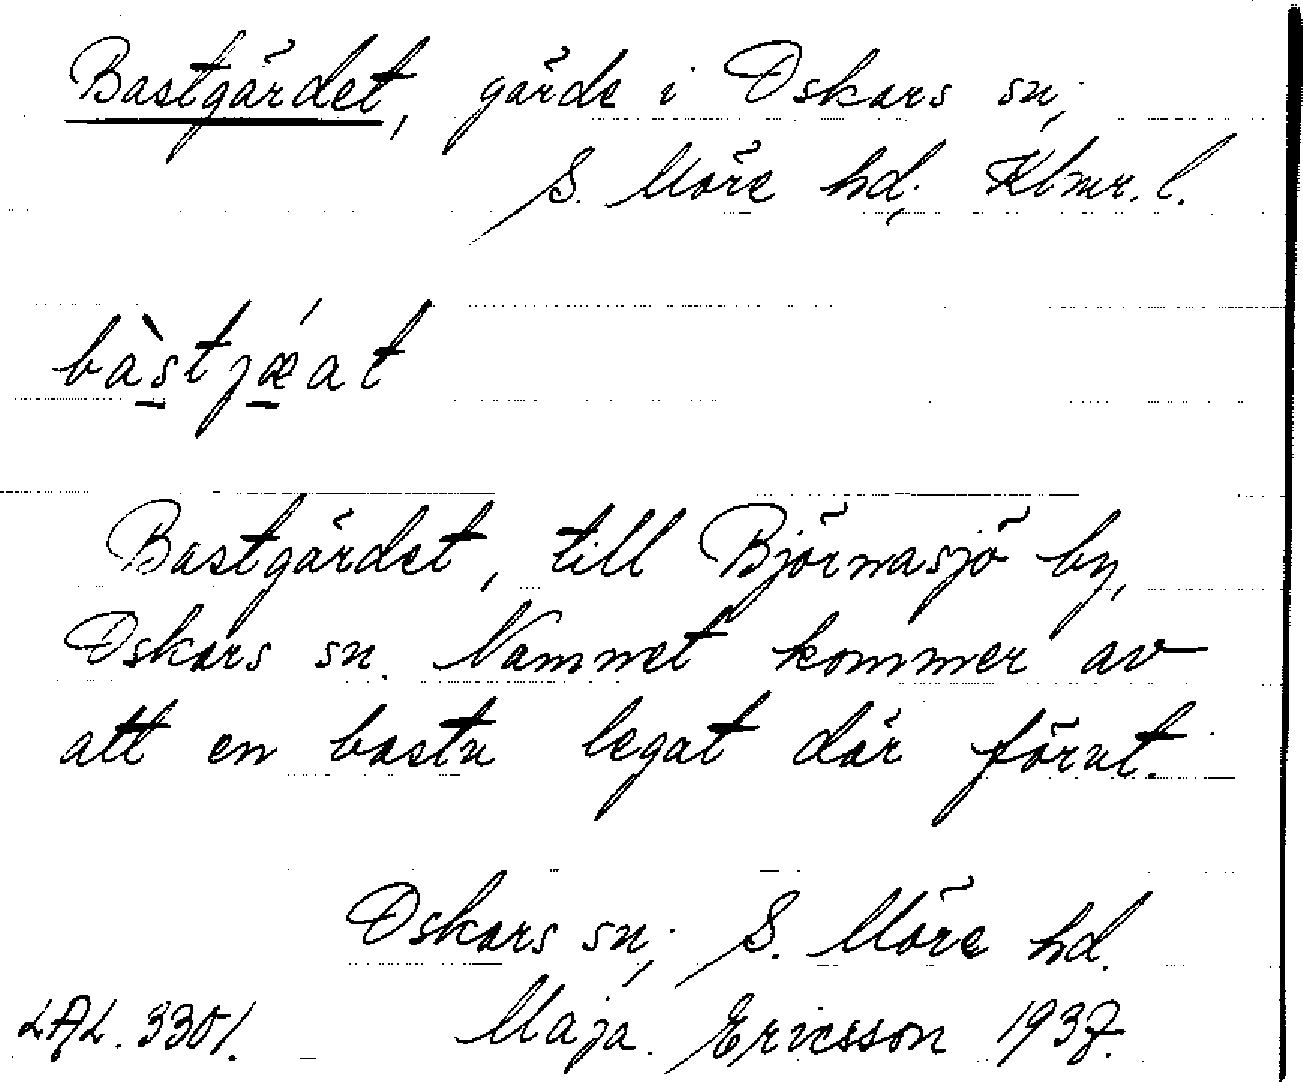 Bastgärdet, gärde i Oskars sn,
S. Möre hd. Klmr. l.
bàstjǽat
Bastgärdet, till Björnasjö by,
Oskars sn. Namnet kommer av
att en bastu legat där förut.
Oskars sn, S. Möre hd.
LAL. 3301. Maja Ericsson 1937.